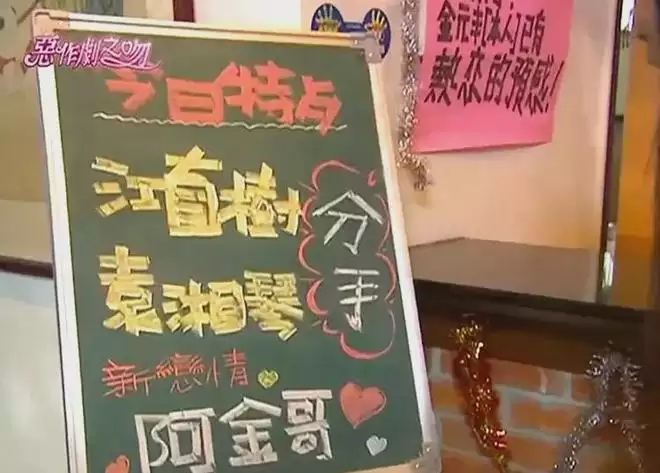 惡作劇之吻
今日特点
江直樹
袁湘琴
分手
新戀情
阿金哥
金元丰(本人)已有
熱恋的預感!